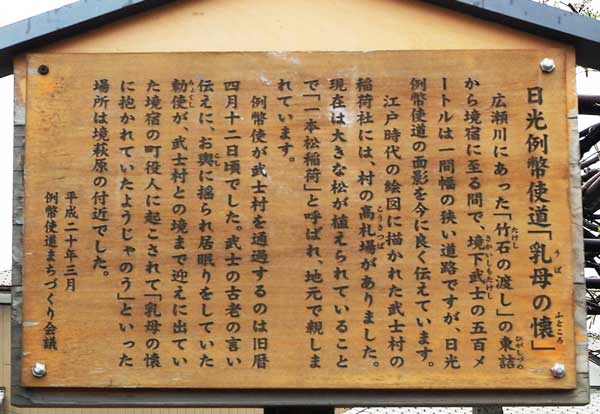 日光例幣使道「乳母の懐」
うば
ふところ
広瀬川にあった「竹石の渡し」の東詰
たけし
ひがしづめ
から境宿に至る間で、境下武士の五百メ
さかいしもたけし
ートルは一間幅の狭い道路ですが、日光
例幣使道の面影を今に良く伝えています。
江戸時代の絵図に描かれた武士村の
稲荷社には、村の高札場がありました。
こうさつば
現在は大きな松が植えられていること
で「一本松稲荷」と呼ばれ、地元で親しま
れています。
例幣使が武士村を通過するのは旧暦
四月十二日頃でした。武士の古老の言い
伝えに、お輿に揺られ居眠りをしていた
こし
勅使が、武士村との境まで迎えに出てい
ちょくし
た境宿の町役人に起こされて「乳母の懐
に抱かれていたようじゃのう」といった
場所は境萩原の付近でした。
平成二十年三月
例幣使道まちづくり会議